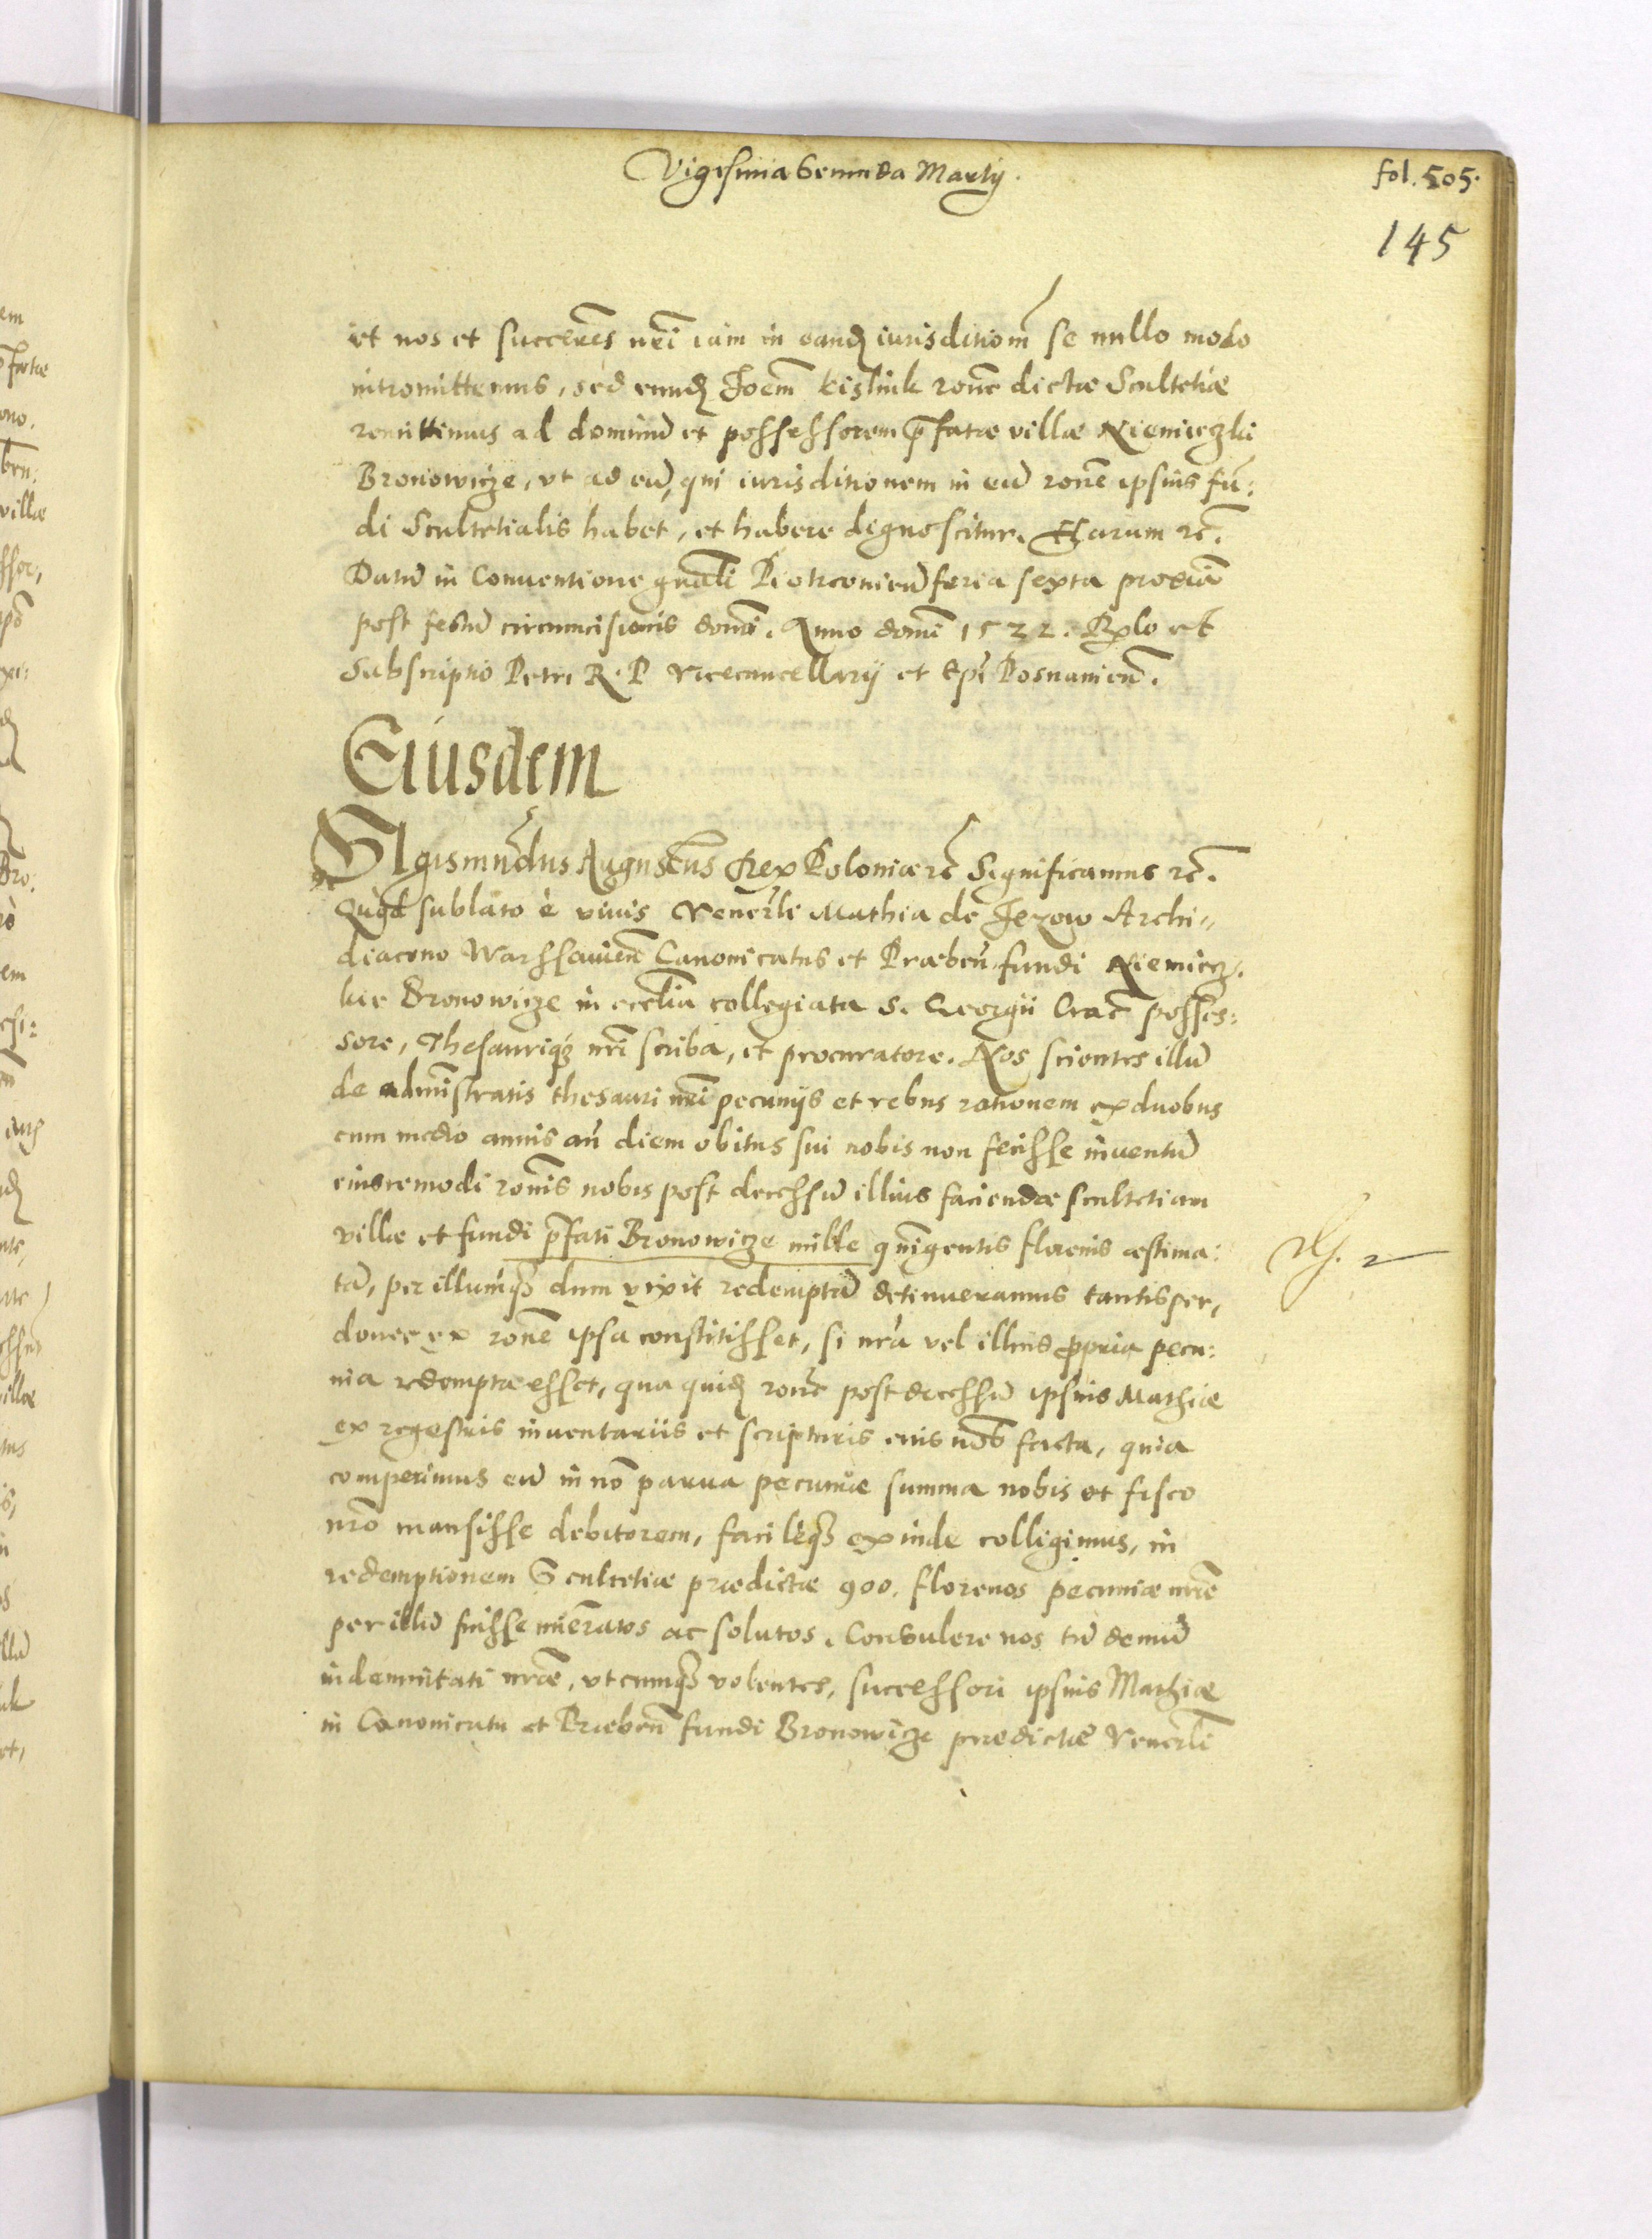 Vigesima Secunda Martij.
fol. 505.
145
et nos et succeres nri iam in eand iurisditiom se nullo modo
intromittemus, sed eund Joem kislink rone dictæ Scultetiæ
remittimus ad dominu et possessorem pfatæ villæ Niemieczki
Bronowicze, ut ad eu, qui iurisditionem in eu rone ipsius fu:
di Scultetialis habet, et habere dignoscitur. Harum rc.
Datu in Conventione gnali Piotrcovien feria sexta proxia
post festu circumcisionis domi. Anno domi 1522. Rlo et
Subscriptio Petri R. P Vicecancellarij et Epi Posnanien.
Eiusdem
Sigismundus Augustus Rex Poloniæ rc Significamus rc.
Quod sublato è vivis Venerli Mathia de Jezow Archi„
diacono Warssavien Canonicatus et Præben fundi Niemiecz.
kie Bronowicze in ecclia collegiata S. Georgii Crac posses:
sore, Thesauriq nri scriba, et procuratore. Nos scientes illu
de administratis thesauri nri pecunijs et rebus rationem ex duobus
cum medio annis an diem obitus sui nobis non fecisse inventu
eiuscemodi ronis nobis post decessu illius faciendæ scultetiam
villæ et fundi pfati Bronowicze mille quingentis florenis æstima:
ta, per illumq dum vixit redempta detinueramus tantisper,
donec ex rone ipsa constitisset, si nra vel illius propria pecu:
nia redempta esset, qua quid rone post decessu ipsius Mathiæ
ex regestris inventariis et scripturis eius nob facta, quia
comperimus eu in no parva pecuniæ summa nobis et fisco
nro mansisse debitorem, facileq exinde colligimus, in
redemptionem Scultetiæ prædictæ 900. florenos pecuniæ nræ
per illu fuisse nueratos ac solutos. Consulere nos tu demu
indemnitati nræ, utcunq volentes, successori ipsius Mathiæ
in Canonicatu et Præben fundi Bronowicze prædictæ Venerli